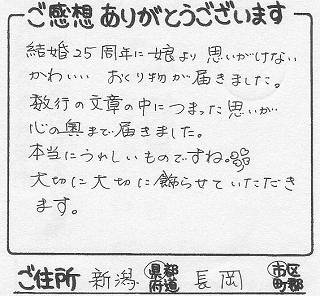 ご感想ありがとうございます
結婚25周年に娘より思いがけない
かわいい おくり物が届きました。
数行の文章の中につまった思いが
心の奥まで届きました。
本当にうれしいものですね。
大切に大切に飾らせていただき
ます。
ご住所 新潟 県都府道 長岡 市区町郡